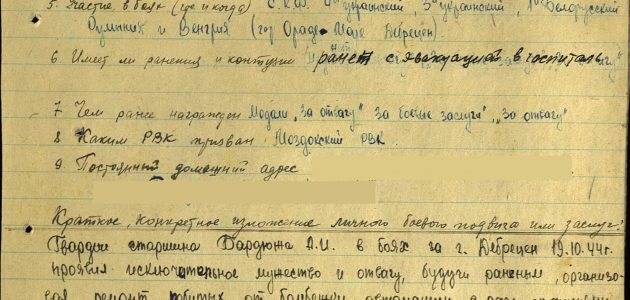 5. Участие в боях (где и когда) С.К.Ф. украинский, 3й украинский, 1й Белорусский
Румыния и Венгрия (гор Ораде-Маре Дебрецен)
6. Имеет ли ранения и контузии ранен с эвакуацией в госпиталь
7 Чем ранее награжден Медали „За отвагу" За боевые заслуги", „За отвагу"
8. Каким РВК призван Моздокский РВК
9. Постоянный домашний адрес
Краткое, конкретное изложение личного боевого подвига или заслуг:
Гвардии старшина Бардюжа в боях за г. Дебрецен 19.10.44г.
проявил исключительное мужество и отвагу, будучи раненым, организо-
вал ремонт от бомбежки